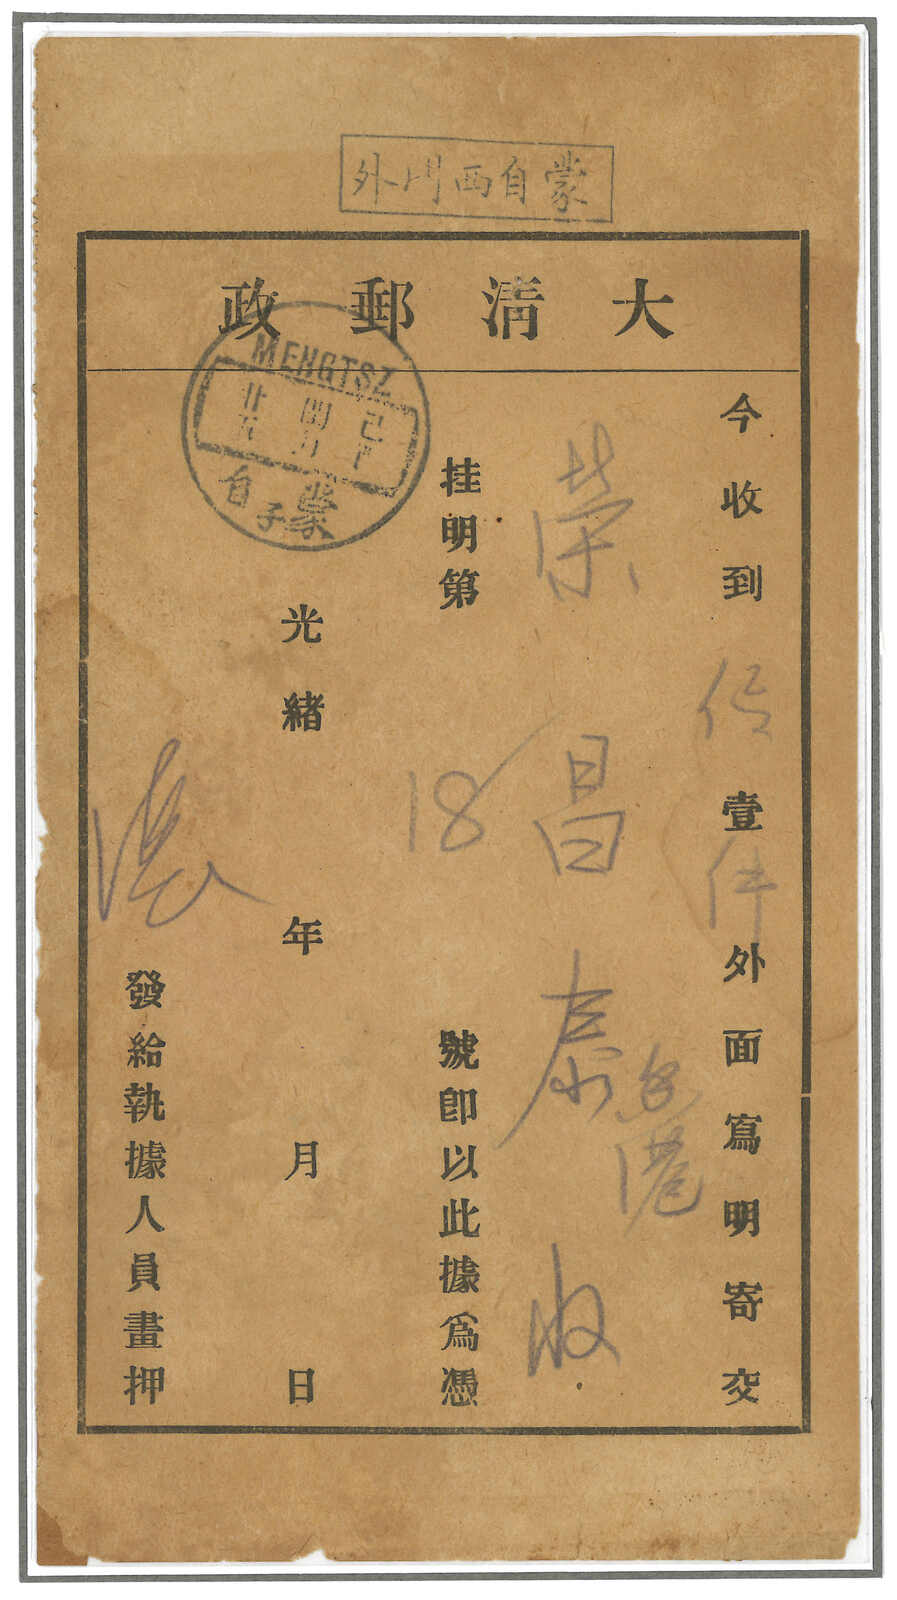 蒙自西門外
大清郵政
今收到信壹件外面寫明寄交
香港
榮昌泰收
挂明第18號即以此據爲憑
MENGTSZ
己酉
四月
廿五
蒙自
光緒年月日
發給執據人員畫押